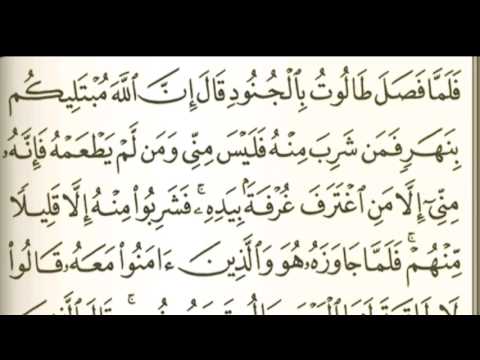 فَلَمَّا فَصَلَ طَالُوتُ بِٱلْجُنُودِ قَالَ إِنَّ ٱللَّهَ مُبْتَلِيكُم
بِنَهَرٍ فَمَن شَرِبَ مِنْهُ فَلَيْسَ مِنِّي وَمَن لَّمْ يَطْعَمْهُ فَإِنَّهُۥ
مِنِّيٓ إِلَّا مَنِ ٱغْتَرَفَ غُرْفَةَۢ بِيَدِهِۦۚ فَشَرِبُوا۟ مِنْهُ إِلَّا قَلِيلًا
مِّنْهُمْۚ فَلَمَّا جَاوَزَهُۥ هُوَ وَٱلَّذِينَ ءَامَنُوا۟ مَعَهُۥ قَالُوا۟
لَا طَاقَةَ